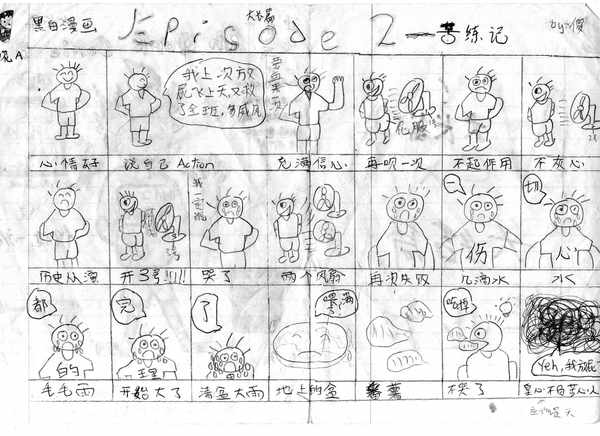 黑白漫画
大长篇
Episode 2—苦练记
by
A
我上次放
屁飞上天又救
了全班,多威风
心情好
说自己 Action
充满信心
再吹一次
不起作用
不灰心
历史从演
开3号!!!!
哭了
两个风扇
再次失败
几滴水
水く
伤
切
心
都
的
完
了
嘿,满
吃掉
毛毛雨
开始大了
清盆大雨
地上的盆
番薯
不哭了
Yeh,我放屁
皇心不白苦心人